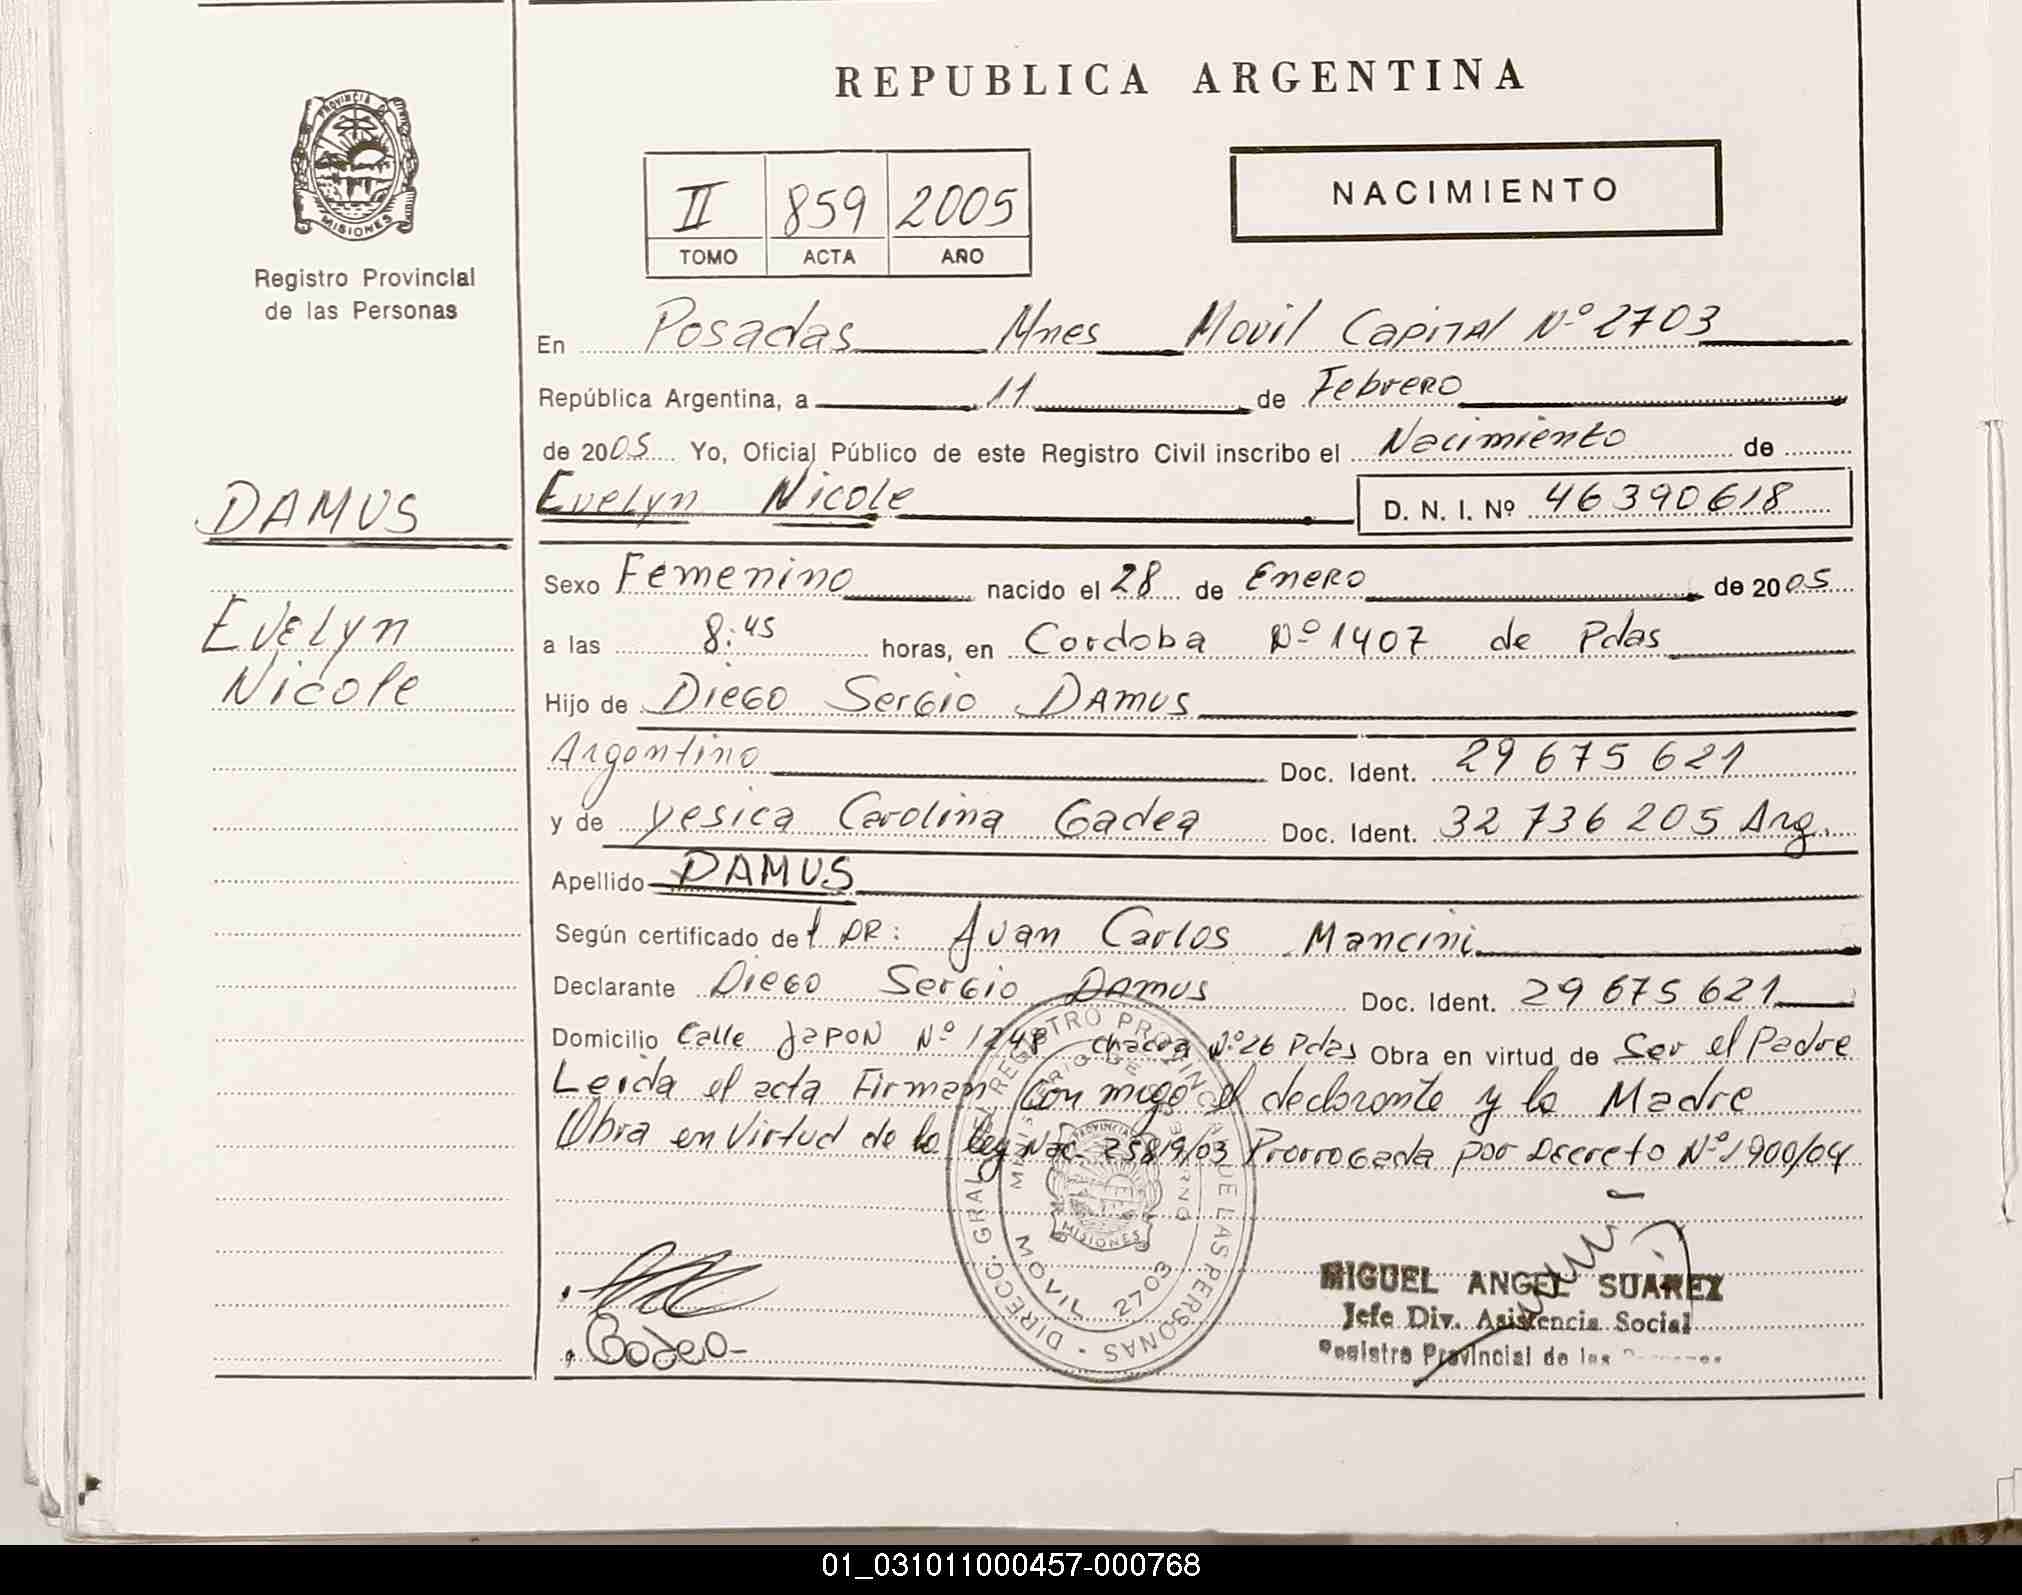 REPUBLICA ARGENTINA
PROVINCIA DE
MISIONES
Registro Provincial
de las Personas
II 859 2005
TOMO ACTA AÑO
NACIMIENTO
En Posadas Mnes Movil Capital Nº 2703
República Argentina, a 11 de Febrero
de 2005 Yo, Oficial Público de este Registro Civil inscribo el Nacimiento de
DAMUS
Evelyn Nicole D. N. I. Nº 46390618
Sexo Femenino nacido el 28 de Enero de 2005
Evelyn
Nicole
a las 8:45 horas, en Cordoba Nº 1407 de Pdas
Hijo de Diego Sergio Damus
Argentino Doc. Ident. 29 675 621
y de Yesica Carolina Gadea Doc. Ident. 32 736 205 Arg.
Apellido DAMUS
Según certificado del DR: Juan Carlos Mancini
Declarante Diego Sergio Damus Doc. Ident. 29 675 621
Domicilio Calle Japon Nº 1248 chacra Nº 26 Pdas Obra en virtud de Ser el Padre
Leida el acta Firman con migo el declarante y la Madre
Obra en Virtud de la ley Nac. 25819/03 Prorrogada por Decreto Nº 1900/04
DIRECC. GRAL. DEL REGISTRO PROVINCIAL DE LAS PERSONAS
MINISTERIO DE GOBIERNO
PROVINCIA
MISIONES
MOVIL 2703
MIGUEL ANGEL SUAREZ
Jefe Div. Asistencia Social
Registro Provincial de las Personas
01_031011000457-000768